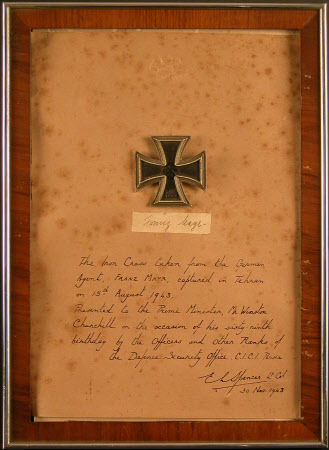 Franz Mayr
The Iron Cross taken from the German
Agent, Franz Mayr, captured in Tehran
on 15th August 1943.
Presented to the Prime Minister, Mr Winston
Churchill on the occasion of his sixty-ninth
birthday by the Officers and Other Ranks of
the Defence Security Office, C.I.C.I. Persia
Spencer Lt Col.
30 Nov. 1943